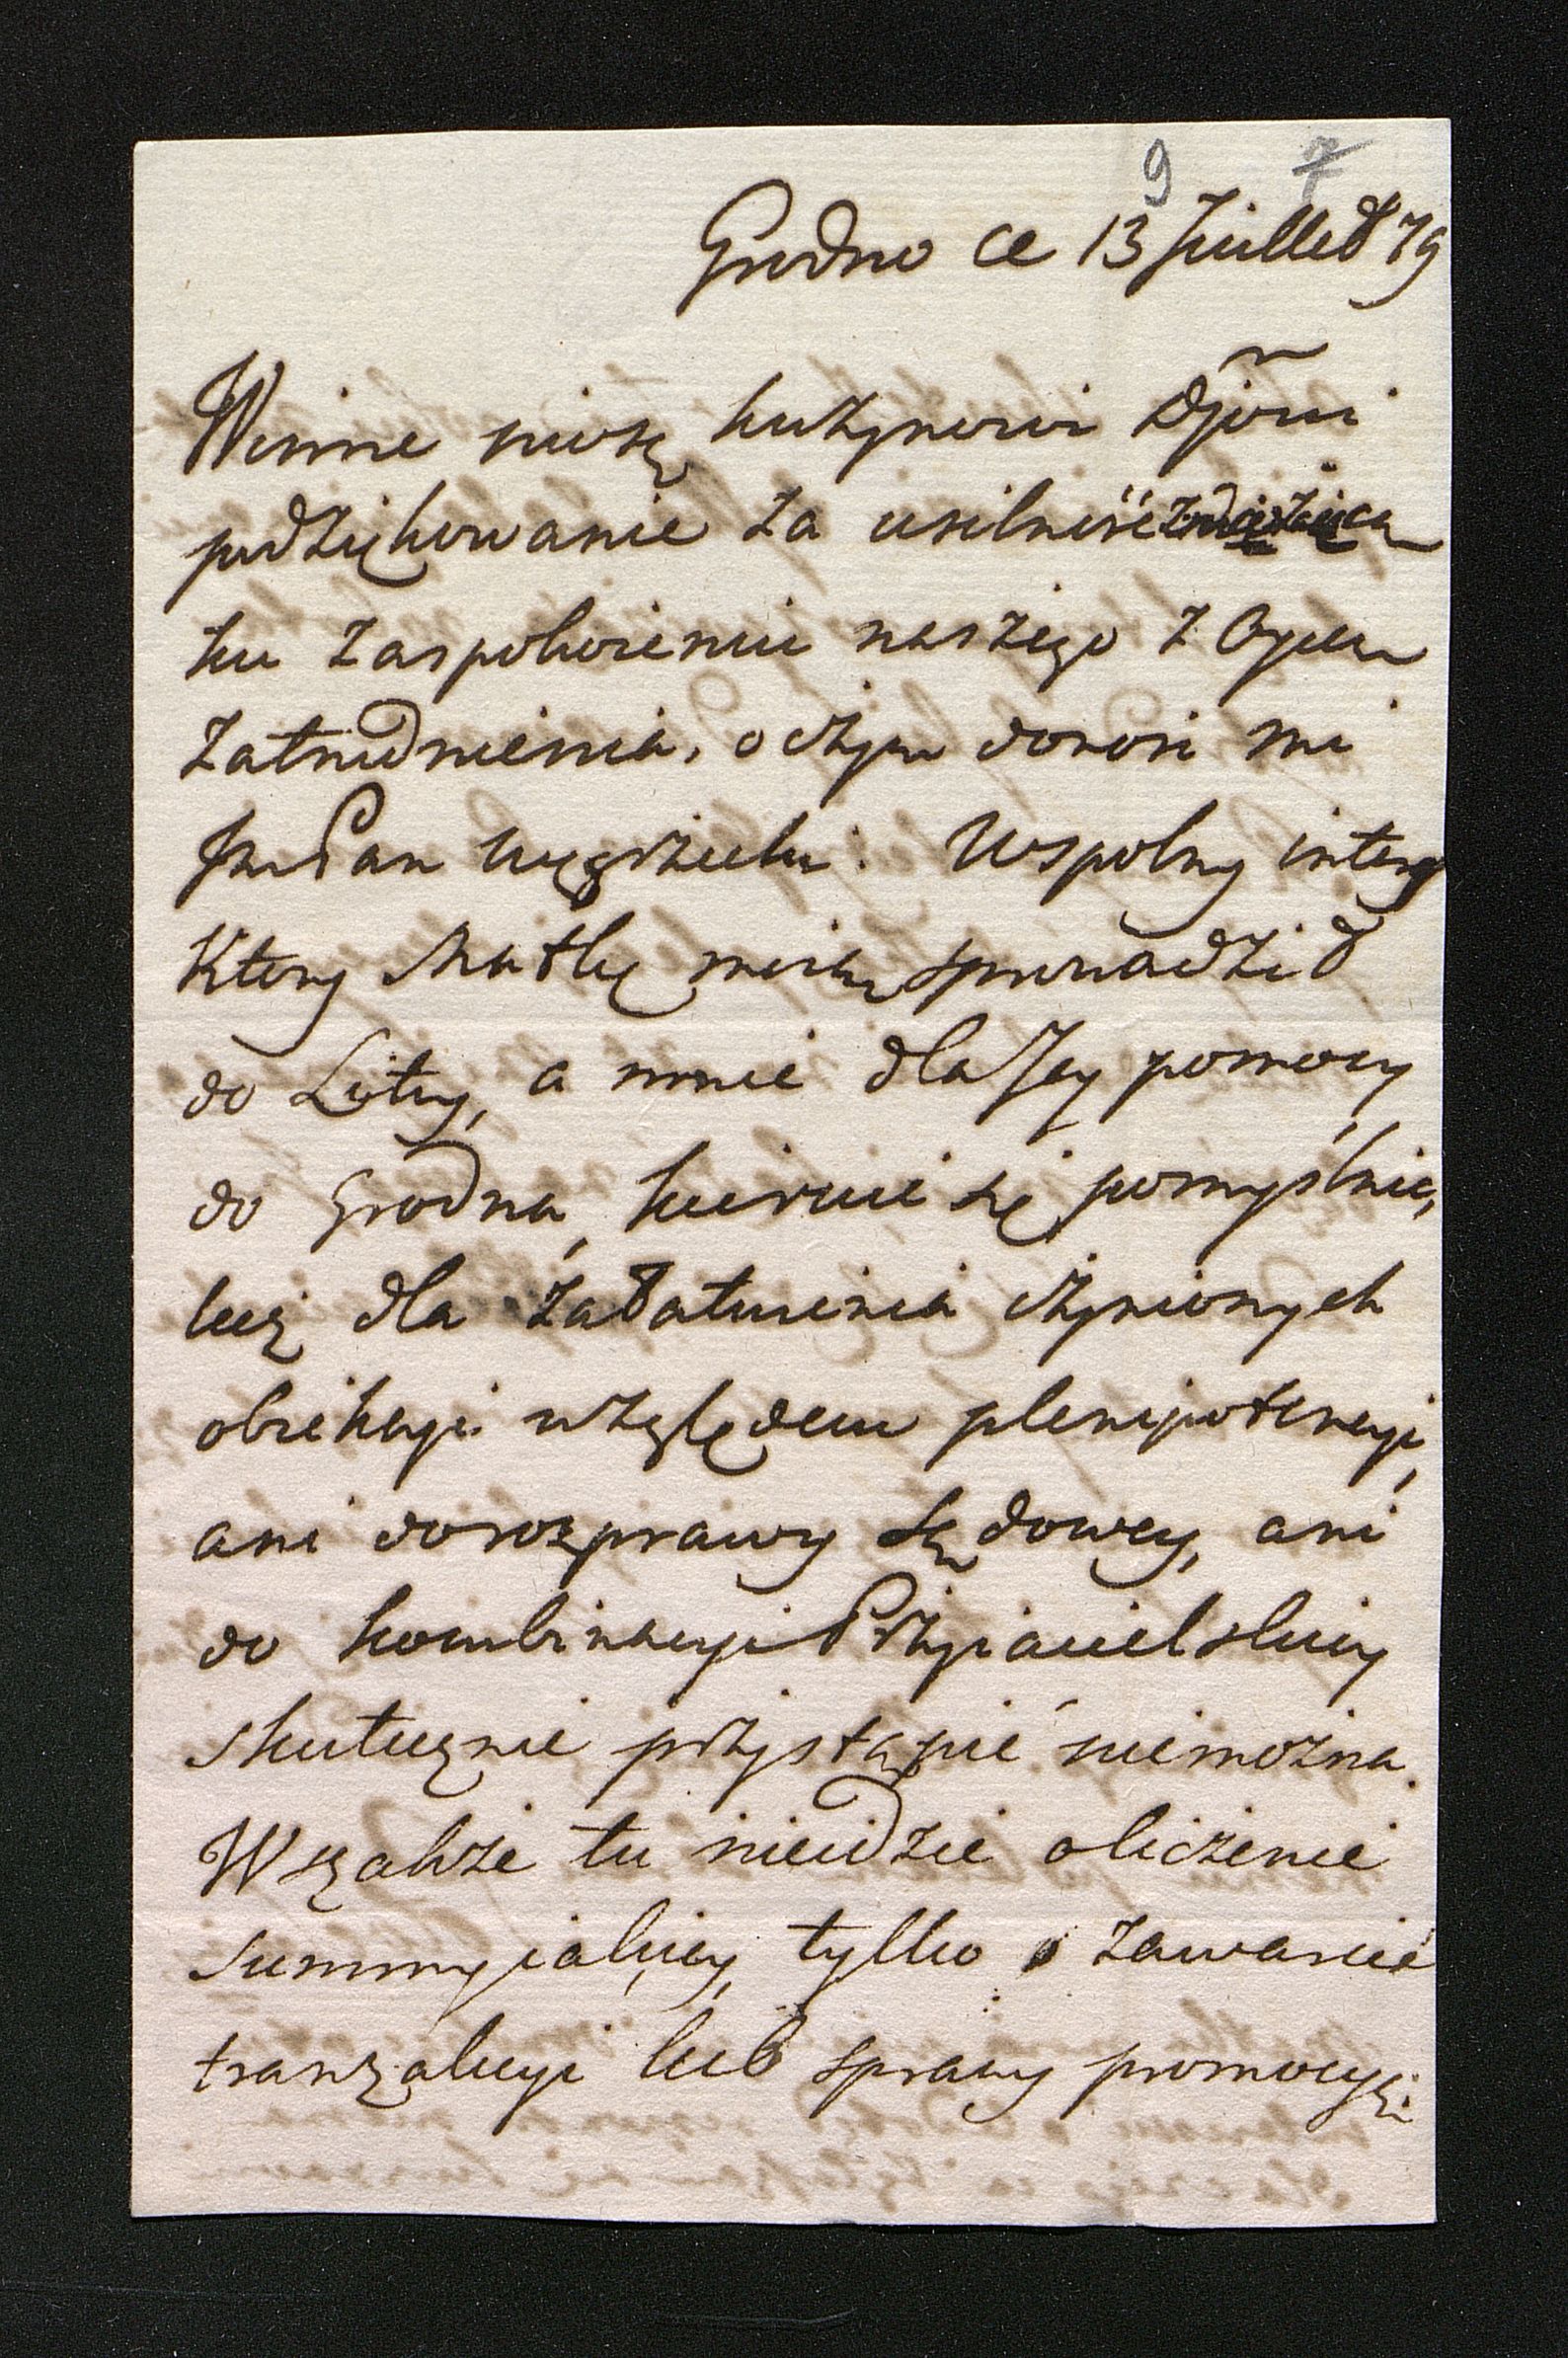 9 7
Grodno ce 13 Juillet 79
Winne niosę kużynowi
podziękowanie za usilność
ku zaspokoieniu naszego z Oycem
zatrudnienia, o czym donosi mi
Pan Węgrzecki. Wspolny interes
Ktory Matkę moią sprowadził
do Lity, a mnie dla Jey pomocy
do Grodna, kieruie się pomyślnie,
lecz dla załatwienia czynionych
obiekcyi względem plenipotencyi,
ani do rozprawy sądowey, ani
do kombinacyi Przyiacielskiey
skutecznie przystąpić niemożna.
Wszakże tu nieidzie o liczenie
summy iakiey, tylko o zawarcie
tranzakcyi lub sprawy promocyi